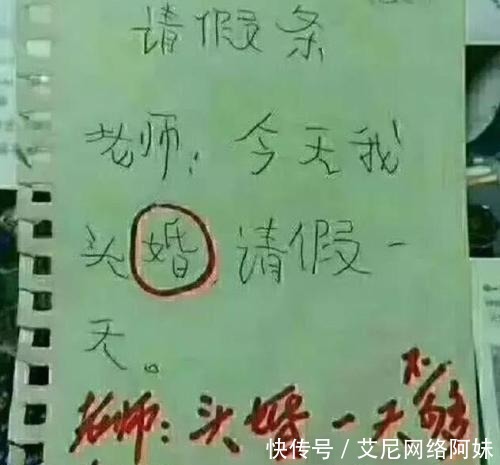 请假条
老师：今天我
头婚，请假一
天。
老师：头婚一天不够
快传号／艾尼网络阿妹